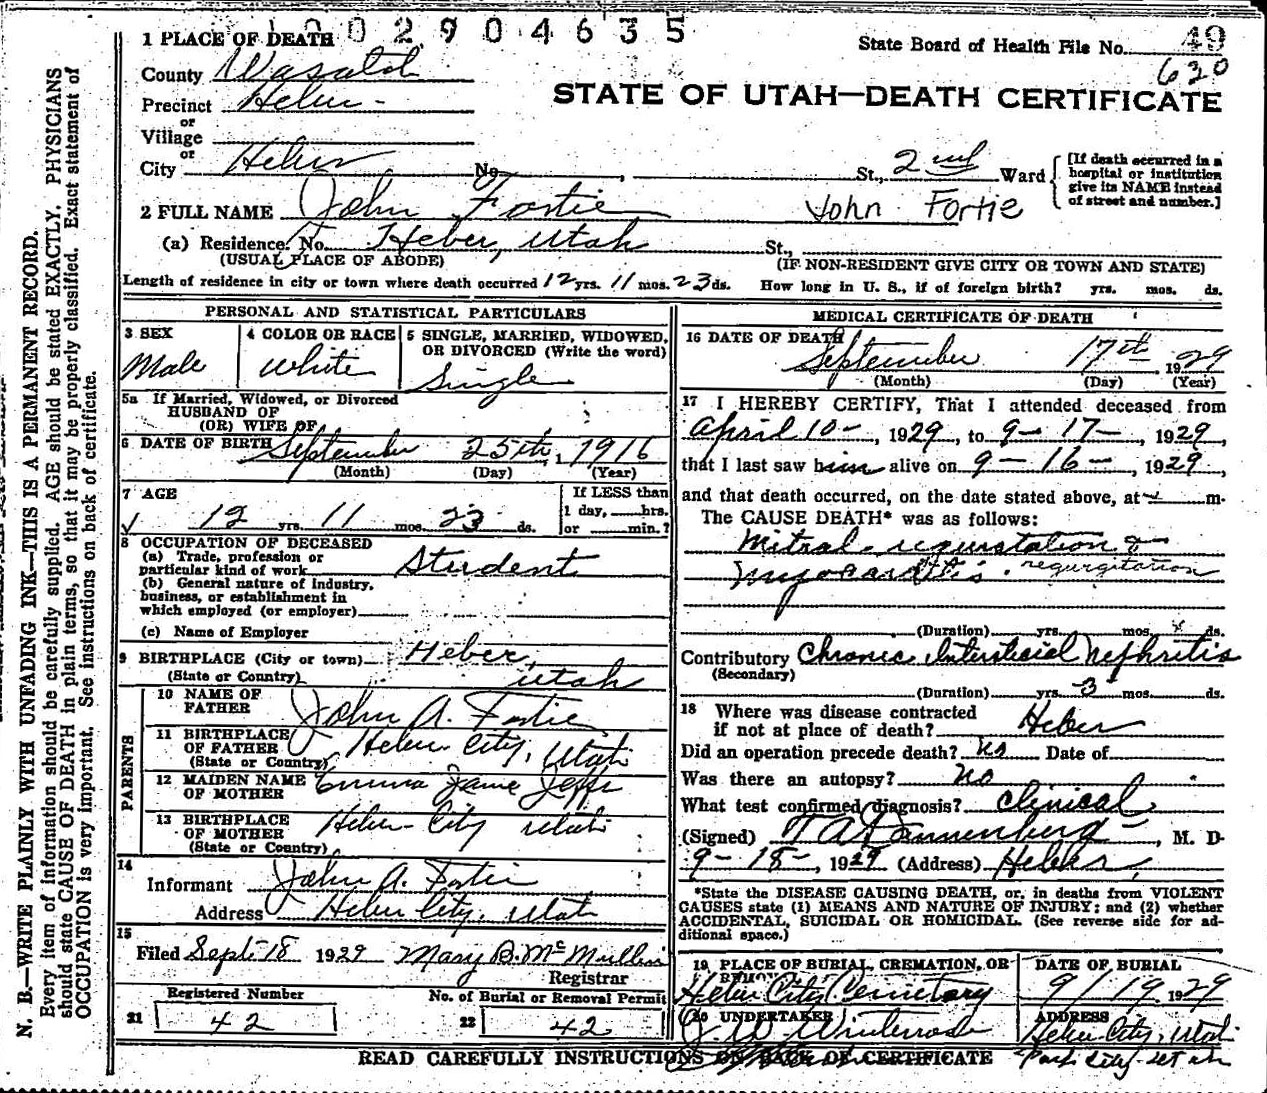 1 0 0 2 9 0 4 6 3 5
1 PLACE OF DEATH
State Board of Health File No. 49
620
County Wasatch
STATE OF UTAH—DEATH CERTIFICATE
Precinct Heber
or
Village
or
City Heber No. , St., 2nd Ward
[If death occurred in a
hospital or institution
give its NAME instead
of street and number.]
2 FULL NAME John Fortie John Fortie
(a) Residence. No. Heber, Utah St.,
(USUAL PLACE OF ABODE) (IF NON-RESIDENT GIVE CITY OR TOWN AND STATE)
Length of residence in city or town where death occurred 12 yrs. 11 mos. 23 ds. How long in U. S., if of foreign birth? yrs. mos. ds.
PERSONAL AND STATISTICAL PARTICULARS
3 SEX
Male
4 COLOR OR RACE
White
5 SINGLE, MARRIED, WIDOWED,
OR DIVORCED (Write the word)
Single
5a If Married, Widowed, or Divorced
HUSBAND OF
(OR) WIFE OF
6 DATE OF BIRTH September 25th, 1916
(Month) (Day) (Year)
7 AGE
12 yrs. 11 mos. 23 ds.
If LESS than
1 day, hrs.
or min.?
8 OCCUPATION OF DECEASED
(a) Trade, profession or
particular kind of work Student
(b) General nature of industry,
business, or establishment in
which employed (or employer)
(c) Name of Employer
9 BIRTHPLACE (City or town) Heber,
(State or Country) Utah
PARENTS
10 NAME OF
FATHER John A. Fortie
11 BIRTHPLACE
OF FATHER Heber City, Utah
(State or Country)
12 MAIDEN NAME
OF MOTHER Emma Jane Jeffs
13 BIRTHPLACE
OF MOTHER Heber City Utah
(State or Country)
14
Informant John A. Fortie
Address Heber City, Utah
15
Filed Sept 18 1929 Mary B. McMullin
Registrar
Registered Number
21 42
No. of Burial or Removal Permit
22 42
MEDICAL CERTIFICATE OF DEATH
16 DATE OF DEATH
September 17th 1929
(Month) (Day) (Year)
17 I HEREBY CERTIFY, That I attended deceased from
April 10-, 1929, to 9-17-, 1929,
that I last saw him alive on 9-16-, 1929,
and that death occurred, on the date stated above, at m.
The CAUSE DEATH* was as follows:
Mitral regurstation &
Myocarditis. regurgitation
(Duration) yrs. mos. ds.
Contributory Chronic Intersticial Nephritis
(Secondary)
(Duration) yrs. 3 mos. ds.
18 Where was disease contracted
if not at place of death? Heber
Did an operation precede death? No Date of
Was there an autopsy? No
What test confirmed diagnosis? Clinical
(Signed) W A Dannenberg, M. D-
9-18-, 1929 (Address) Heber,
*State the DISEASE CAUSING DEATH, or, in deaths from VIOLENT
CAUSES state (1) MEANS AND NATURE OF INJURY; and (2) whether
ACCIDENTAL, SUICIDAL OR HOMICIDAL. (See reverse side for ad-
ditional space.)
19 PLACE OF BURIAL, CREMATION, OR
REMOVAL
Heber City Cemetery
DATE OF BURIAL
9/19 1929
20 UNDERTAKER
J. W. Winterrose
ADDRESS
Heber City, Utah
Park City Utah
READ CAREFULLY INSTRUCTIONS ON BACK OF CERTIFICATE
N. B.—WRITE PLAINLY WITH UNFADING INK—THIS IS A PERMANENT RECORD.
Every item of information should be carefully supplied. AGE should be stated EXACTLY. PHYSICIANS
should state CAUSE OF DEATH in plain terms, so that it may be properly classified. Exact statement of
OCCUPATION is very important. See instructions on back of certificate.